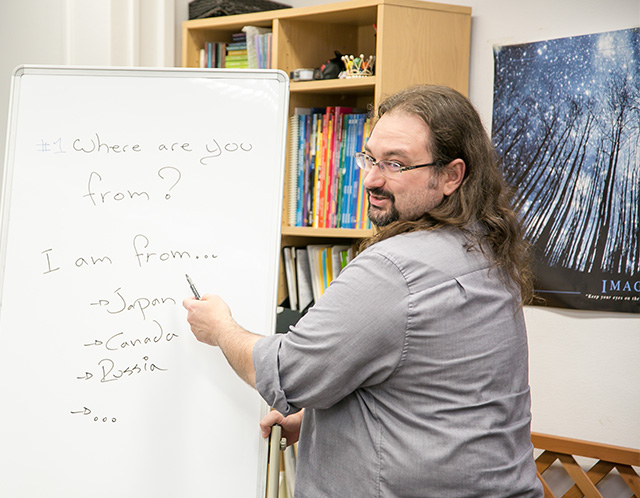 #1 Where are you
from?
I am from...
→ Japan
→ Canada
→ Russia
→ ...
IMAG
"Keep your eyes on the